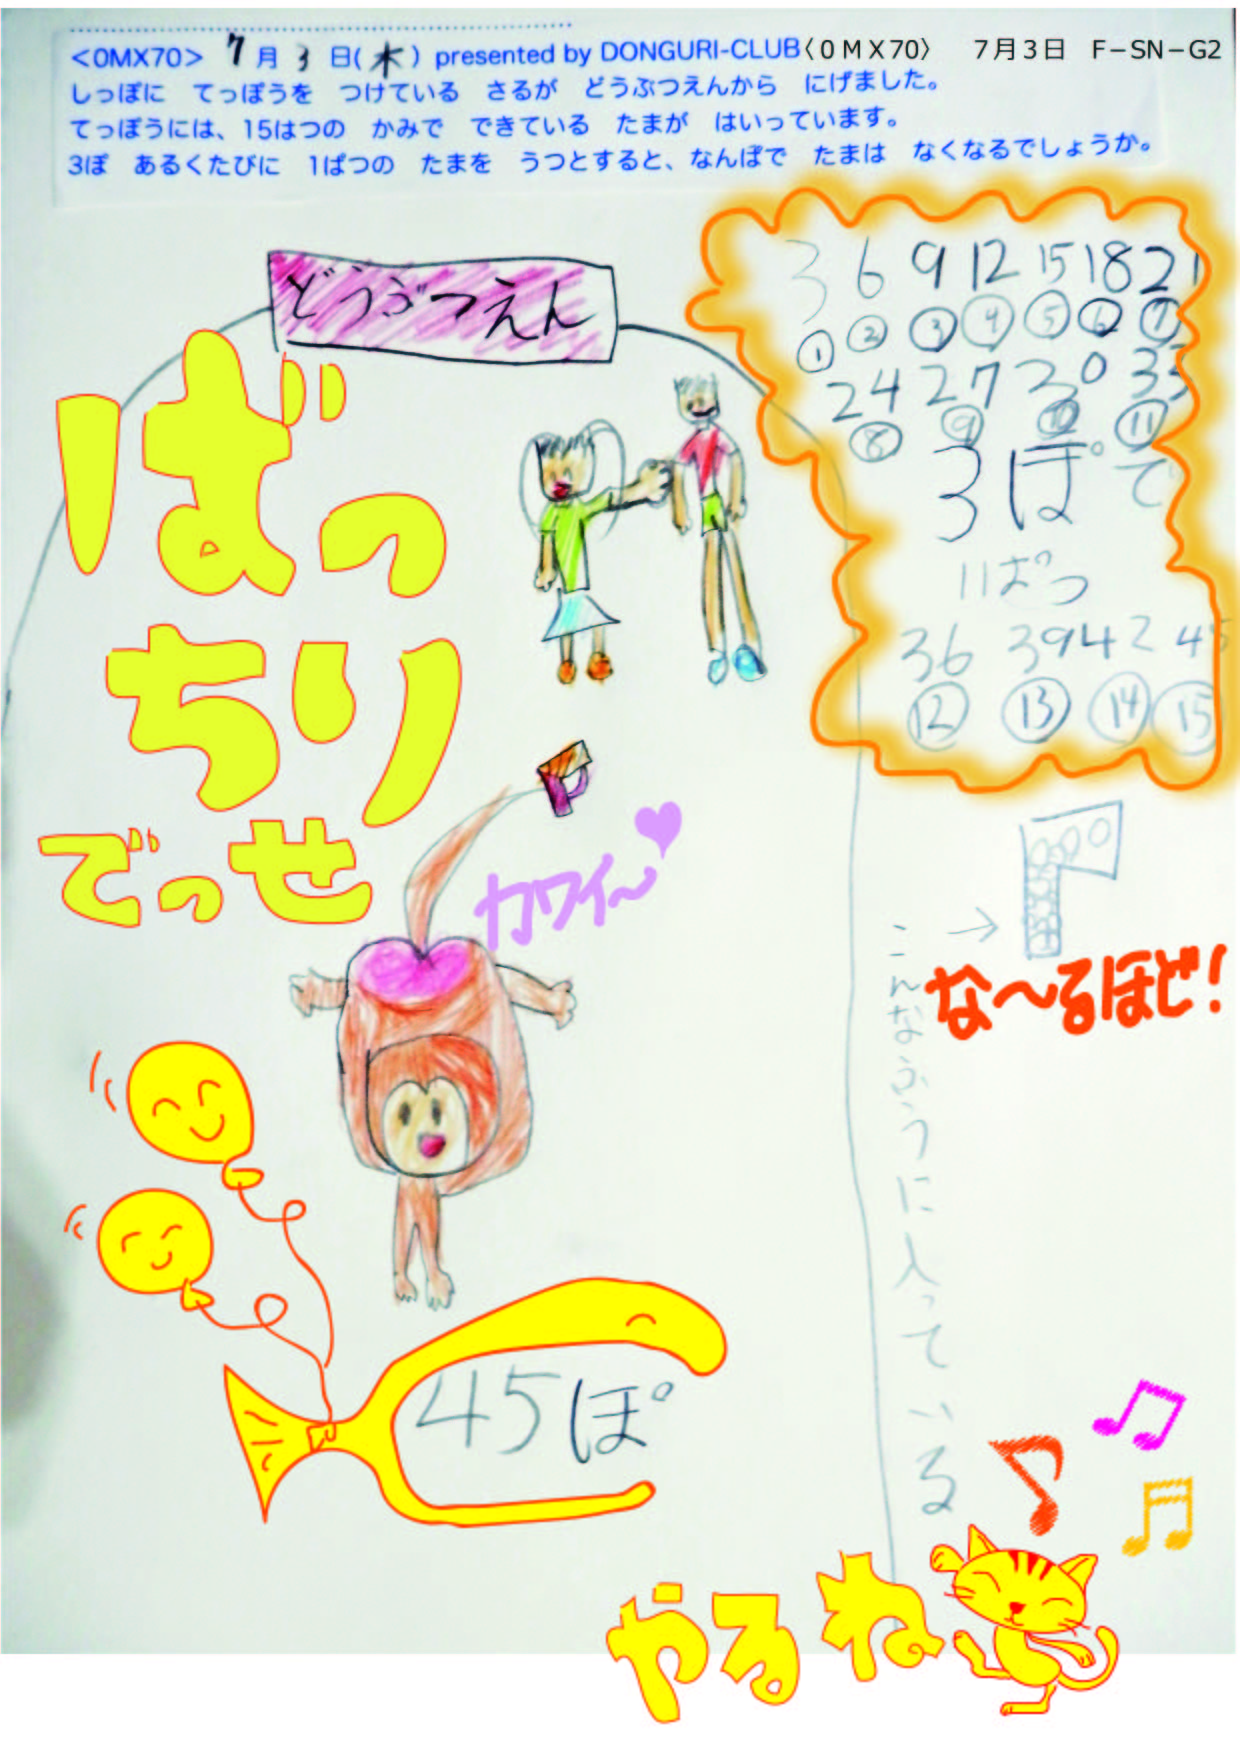 <0MX70> 7月 3 日(木) presented by DONGURI-CLUB〈0MX70〉 7月3日 F−SN−G2
しっぽに てっぽうを つけている さるが どうぶつえんから にげました。
てっぽうには、15はつの かみで できている たまが はいっています。
3ぽ あるくたびに 1ぱつの たまを うつとすると、なんぽで たまは なくなるでしょうか。
どうぶつえん
3 6 9 12 15 18 21
① ② ③ ④ ⑤ ⑥ ⑦
24 27 30 33
⑧ ⑨ ⑩ ⑪
3ぽで
1ぱつ
36 39 42 45
⑫ ⑬ ⑭ ⑮
ばっ
ちり
でっせ
カワイ〜
→
な〜るほど!
こんなふうに入っている
45ぽ
やるね